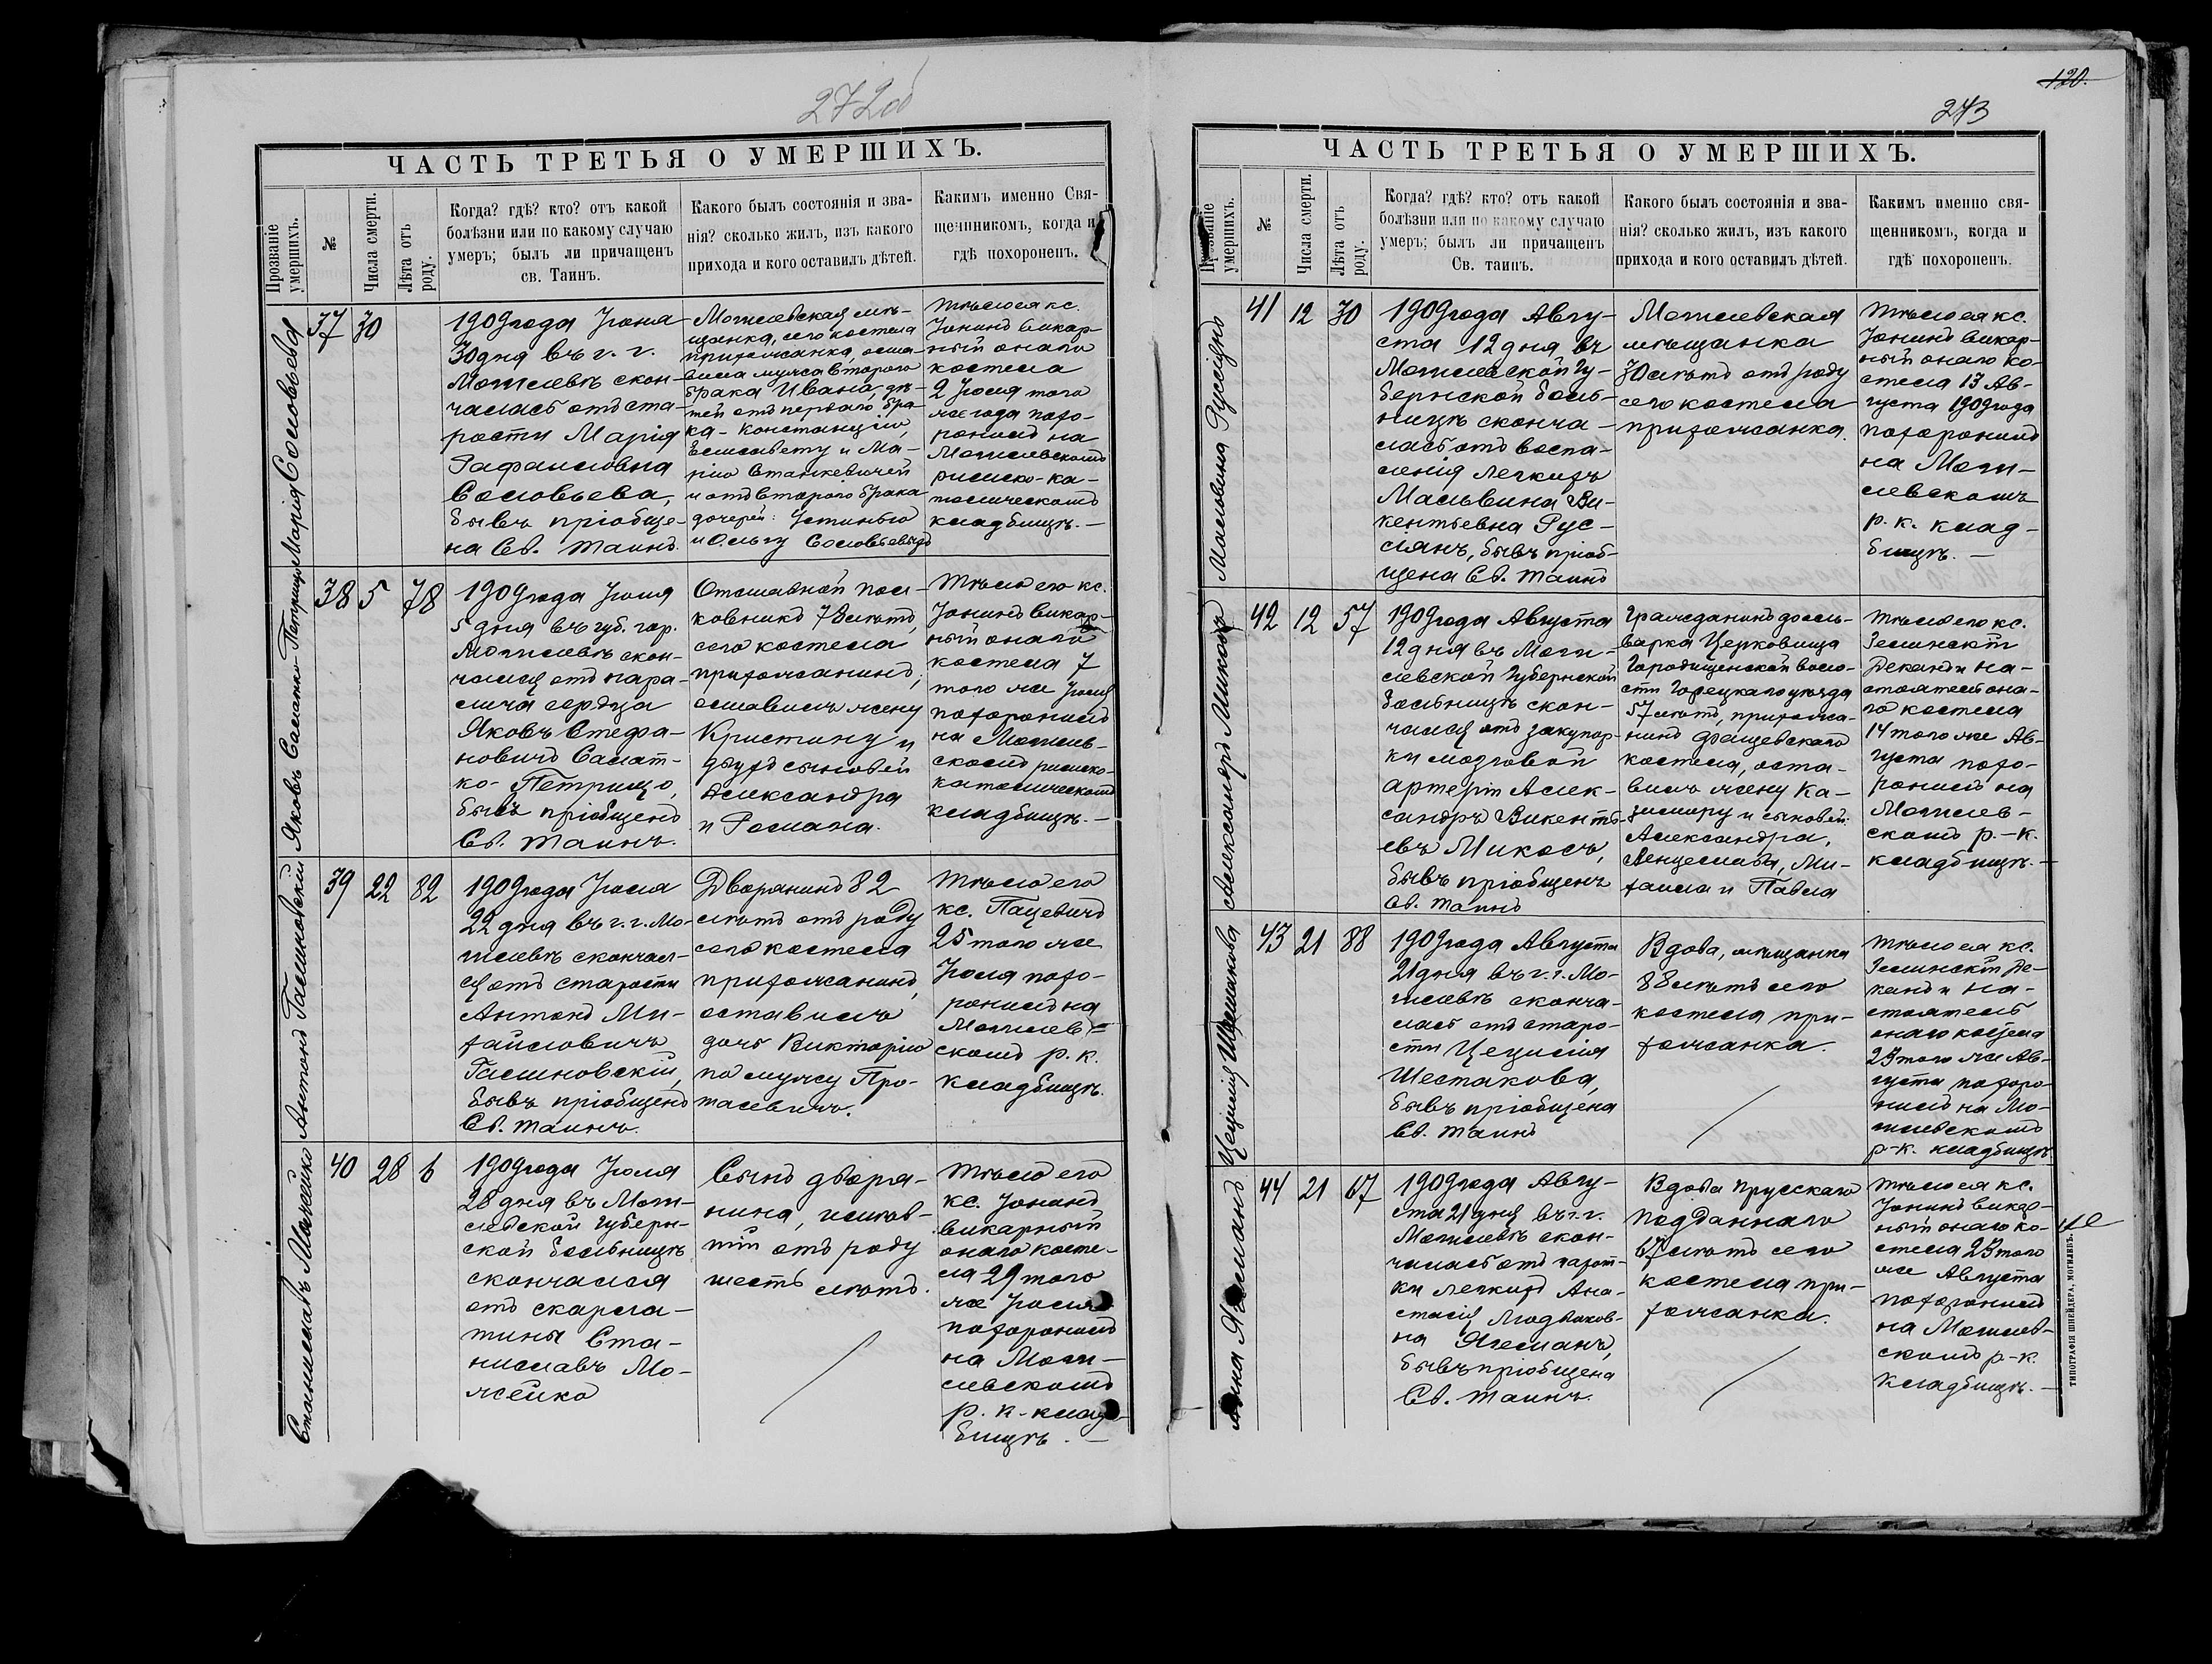 272об
ЧАСТЬ ТРЕТЬЯ О УМЕРШИХЪ.
Прозваніе умершихъ.
№
Числа смерти.
Лѣта отъ роду.
Когда? гдѣ? кто? отъ какой
болѣзни или по какому случаю
умеръ; былъ ли причащенъ
св. Таинъ.
Какого былъ состоянія и зва-
нія? сколько жилъ, изъ какого
прихода и кого оставилъ дѣтей.
Какимъ именно Свя-
щенникомъ, когда и
гдѣ похороненъ.
Марія Соловьева
37
30
1909 года Іюня
30 дня въ г. г.
Могилевѣ скон-
чалась отъ ста-
рости Марія
Рафаиловна
Соловьева,
бывъ пріобще-
на Св. Таинъ.
Могилевская мѣ-
щанка, сего костела
прихожанка, оста-
вила мужа второго
брака Ивана, дѣ-
тей отъ перваго бра-
ка - Констанцію,
Елисавету и Ма-
рію Станкевичей
и отъ второго брака
дочерей: Устинью
и Ольгу Соловьевыхъ
Тѣло ея кс.
Іонинъ викар-
ный онаго
костела
2 Іюля того
же года похо-
ронилъ на
Могилевскомъ
римско-ка-
толическомъ
кладбищѣ. —
Яковъ Саматко-Петрищо
38
5
78
1909 года Іюля
5 дня въ губ. гор.
Могилевѣ скон-
чался отъ пара-
лича сердца
Яковъ Стефа-
новичъ Самат-
ко-Петрищо,
бывъ пріобщенъ
Св. Таинъ.
Отставной пол-
ковникъ 78 лѣтъ,
сего костела
прихожанинъ,
оставилъ жену
Кристину и
двухъ сыновей
Александра
и Романа.
Тѣло его кс.
Іонинъ викар-
ный онаго
костела 7
того же Іюля
похоронилъ
на Могилев-
скомъ римско-
католическомъ
кладбищѣ. —
Антонъ Галиновскій
39
22
82
1909 года Іюля
22 дня въ г. г. Мо-
гилевѣ скончал-
ся отъ старости
Антонъ Ми-
хайловичъ
Галиновскій,
бывъ пріобщенъ
Св. Таинъ.
Дворянинъ 82
лѣтъ отъ роду
сего костела
прихожанинъ,
оставилъ
дочь Викторію
по мужу Про-
тасевичъ.
Тѣло его
кс. Пацевичъ
25 того же
Іюля похо-
ронилъ на
Могилев-
скомъ р. к.
кладбищѣ.
СтаниславъМожейко
40
28
6
1909 года Іюля
28 дня въ Моги-
левской Губерн-
ской больницѣ
скончался
отъ скарла-
тины Ста-
ниславъ Мо-
жейко
Сынъ дворя-
нина, имѣв-
шій отъ роду
шесть лѣтъ.
Тѣло его
кс. Іонинъ
викарный
онаго косте-
ла 29 того
же Іюля
похоронилъ
на Моги-
левскомъ
р. к. клад-
бищѣ. —
120.
273
ЧАСТЬ ТРЕТЬЯ О УМЕРШИХЪ.
Прозваніе умершихъ.
№
Числа смерти.
Лѣта отъ роду.
Когда? гдѣ? кто? отъ какой
болѣзни или по какому случаю
умеръ; былъ ли причащенъ
Св. таинъ.
Какого былъ состоянія и зва-
нія? сколько жилъ, изъ какого
прихода и кого оставилъ дѣтей.
Какимъ именно свя-
щенникомъ, когда и
гдѣ похороненъ.
41
12
30
1909 года Авгу-
ста 12 дня въ
Могилевской Гу-
бернской боль-
ницѣ сконча-
лась отъ воспа-
ленія легкихъ
Мальвина Ви-
кентьевна Рус-
сіянъ, бывъ пріоб-
щена Св. Таинъ
Могилевская
мѣщанка
30 лѣтъ отъ роду
сего костела
прихожанка.
Тѣло ея кс.
Іонинъ викар-
ный онаго ко-
стела 13 Ав-
густа 1909 года
похоронилъ
на Моги-
левскомъ
р. к. клад-
бищѣ. —
Александръ Микосъ
42
12
57
1909 года Августа
12 дня въ Моги-
левской Губернской
больницѣ скон-
чался отъ закупор-
ки мозговой
артеріи Алек-
сандръ Викенть-
евъ Микосъ,
бывъ пріобщенъ
Св. Таинъ
Гражданинъ фоль-
варка Церковища
Городищенской воло-
сти Горецкаго уѣзда
57 лѣтъ, прихожа-
нинъ Фащевскаго
костела, оста-
вилъ жену Ка-
зимиру и сыновей:
Александра,
Венцеслава, Ми-
хаила и Павла
Тѣло его кс.
Зелинскій
Деканъ и на-
стоятель она-
го костела
14 того же Ав-
густа похо-
ронилъ на
Могилев-
скомъ р.-к.
кладбищѣ. —
Цецилія Шестакова
43
21
88
1909 года Августа
21 дня въ г. г. Мо-
гилевѣ сконча-
лась отъ старо-
сти Цецилія
Шестакова,
бывъ пріобщена
Св. Таинъ
Вдова, мѣщанка
88 лѣтъ сего
костела при-
хожанка.
Тѣло ея кс.
Зелинскій Де-
канъ и на-
стоятель
онаго костела
23 того же Ав-
густа похоро-
нилъ на Мо-
гилевскомъ
р-к. кладбищѣ
44
21
67
1909 года Авгу-
ста 21 дня въ г. г.
Могилевѣ скон-
чалась отъ чахот-
ки легкихъ Ана-
стасія Людвиков-
на Ягеманъ,
бывъ пріобщена
Св. Таинъ.
Вдова Прусскаго
подданнаго
67 лѣтъ сего
костела при-
хожанка.
Тѣло ея кс.
Іонинъ викар-
ный онаго ко-
стела 23 того
же Августа
похоронилъ
на Могилев-
скомъ р-к.
кладбищѣ. —
ТИПОГРАФІЯ ШНЕЙДЕРА. МОГИЛЕВЪ.